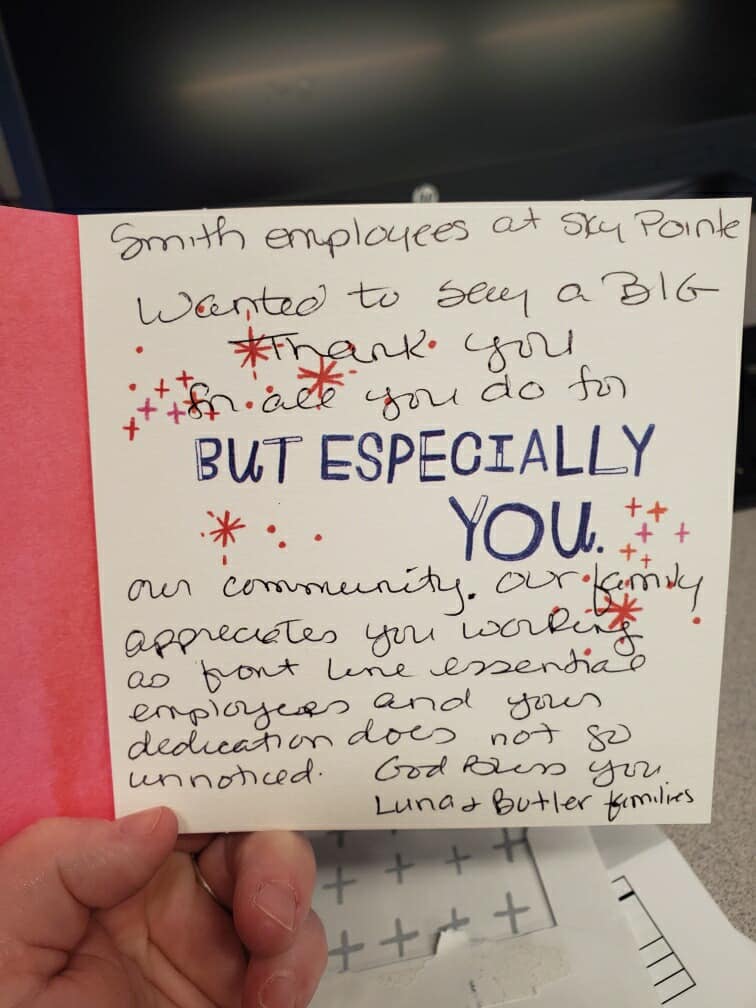 Smith employees at Sky Pointe
Wanted to say a BIG
Thank you
for all you do for
BUT ESPECIALLY
YOU.
our community. our family
appreciates you working
as front line essential
employees and your
dedication does not go
unnoticed. God Bless you
Luna & Butler families